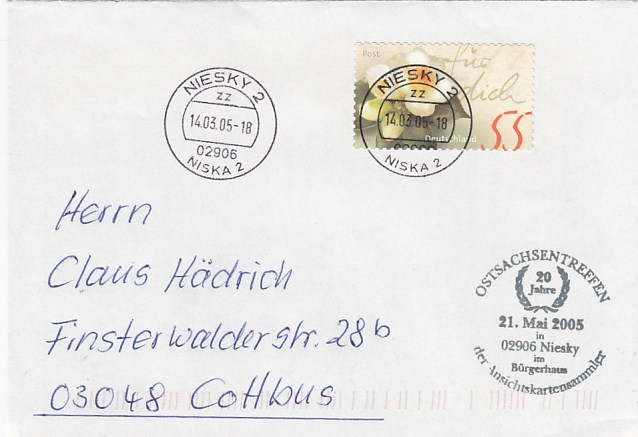 NIESKY 2
zz
14.03.05-18
02906
NISKA 2
Post
für
dich
NIESKY 2
zz
14.03.05-18
Deutschland
55
NISKA 2
Herrn
Claus Hädrich
Finsterwalderstr. 28b
03048 Cottbus
OSTSACHSENTREFFEN
20
Jahre
21. Mai 2005
in
02906 Niesky
im
Bürgerhaus
der Ansichtskartensammler